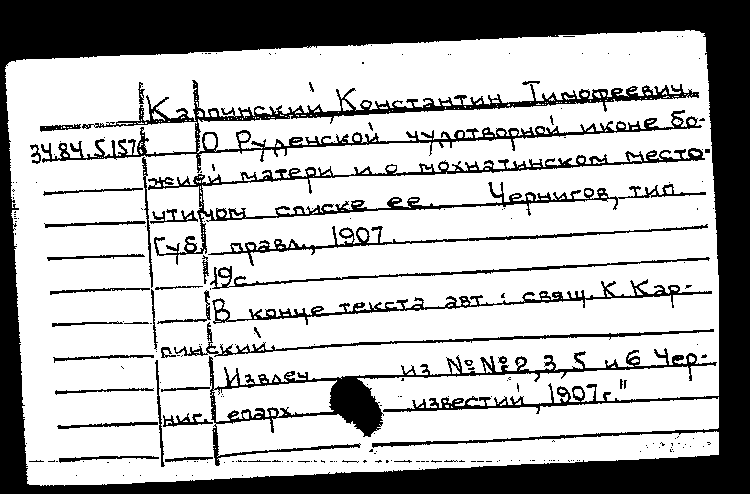 Карпинский, Константин Тимофеевич.
34.84.5.1576. О Руденской чудотворной иконе бо-
жией матери и о мохнатинском место-
чтимом списке ее. Чернигов, тип.
Губ. правл., 1907.
19с.
В конце текста авт.: свящ. К. Кар-
пинский.
"Извлеч. из №№2, 3, 5 и 6 Чер-
ниг. епарх. известий, 1907г."